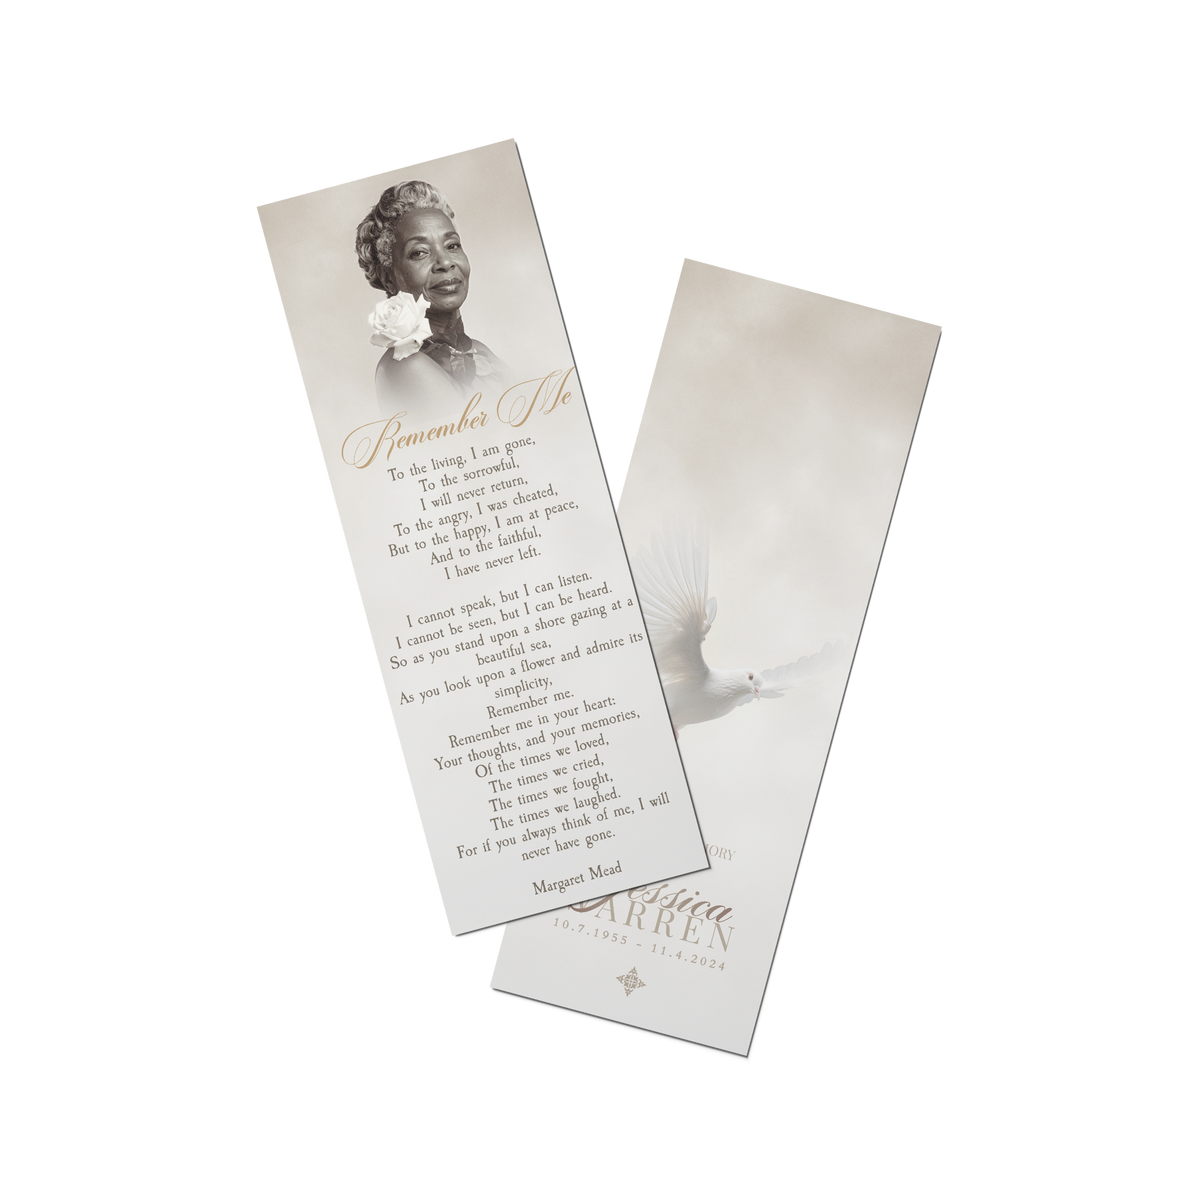 Remember Me
To the living, I am gone,
To the sorrowful,
I will never return,
To the angry, I was cheated,
But to the happy, I am at peace,
And to the faithful,
I have never left.
I cannot speak, but I can listen.
I cannot be seen, but I can be heard.
So as you stand upon a shore gazing at a
beautiful sea,
As you look upon a flower and admire its
simplicity,
Remember me.
Remember me in your heart:
Your thoughts, and your memories,
Of the times we loved,
The times we cried,
The times we fought,
The times we laughed.
For if you always think of me, I will
never have gone.
Margaret Mead
Jessica
10.7.1955 - 11.4.2024